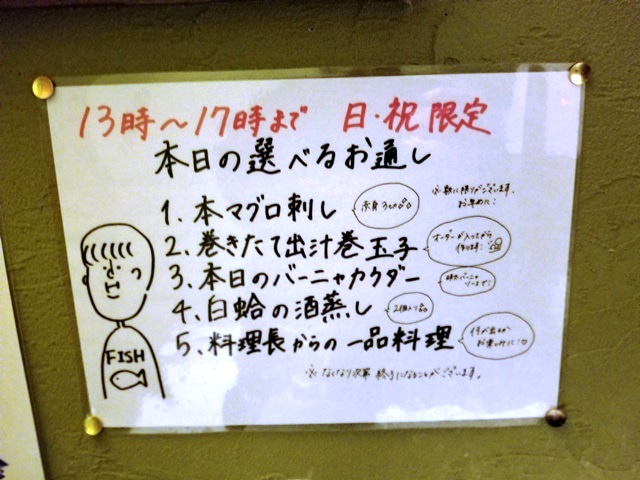 13時～17時まで 日・祝 限定
本日の選べるお通し
※数に限りがございます。
お早めに!
1、本マグロ刺し
2、巻きたて出汁巻玉子
オーダーが入ってから
作ります!
3、本日のバーニャカウダー
4、白蛤の酒蒸し
2個入り
5、料理長からの一品料理
何が出るか
お楽しみに!
※なくなり次第 終了になることがございます。
FISH